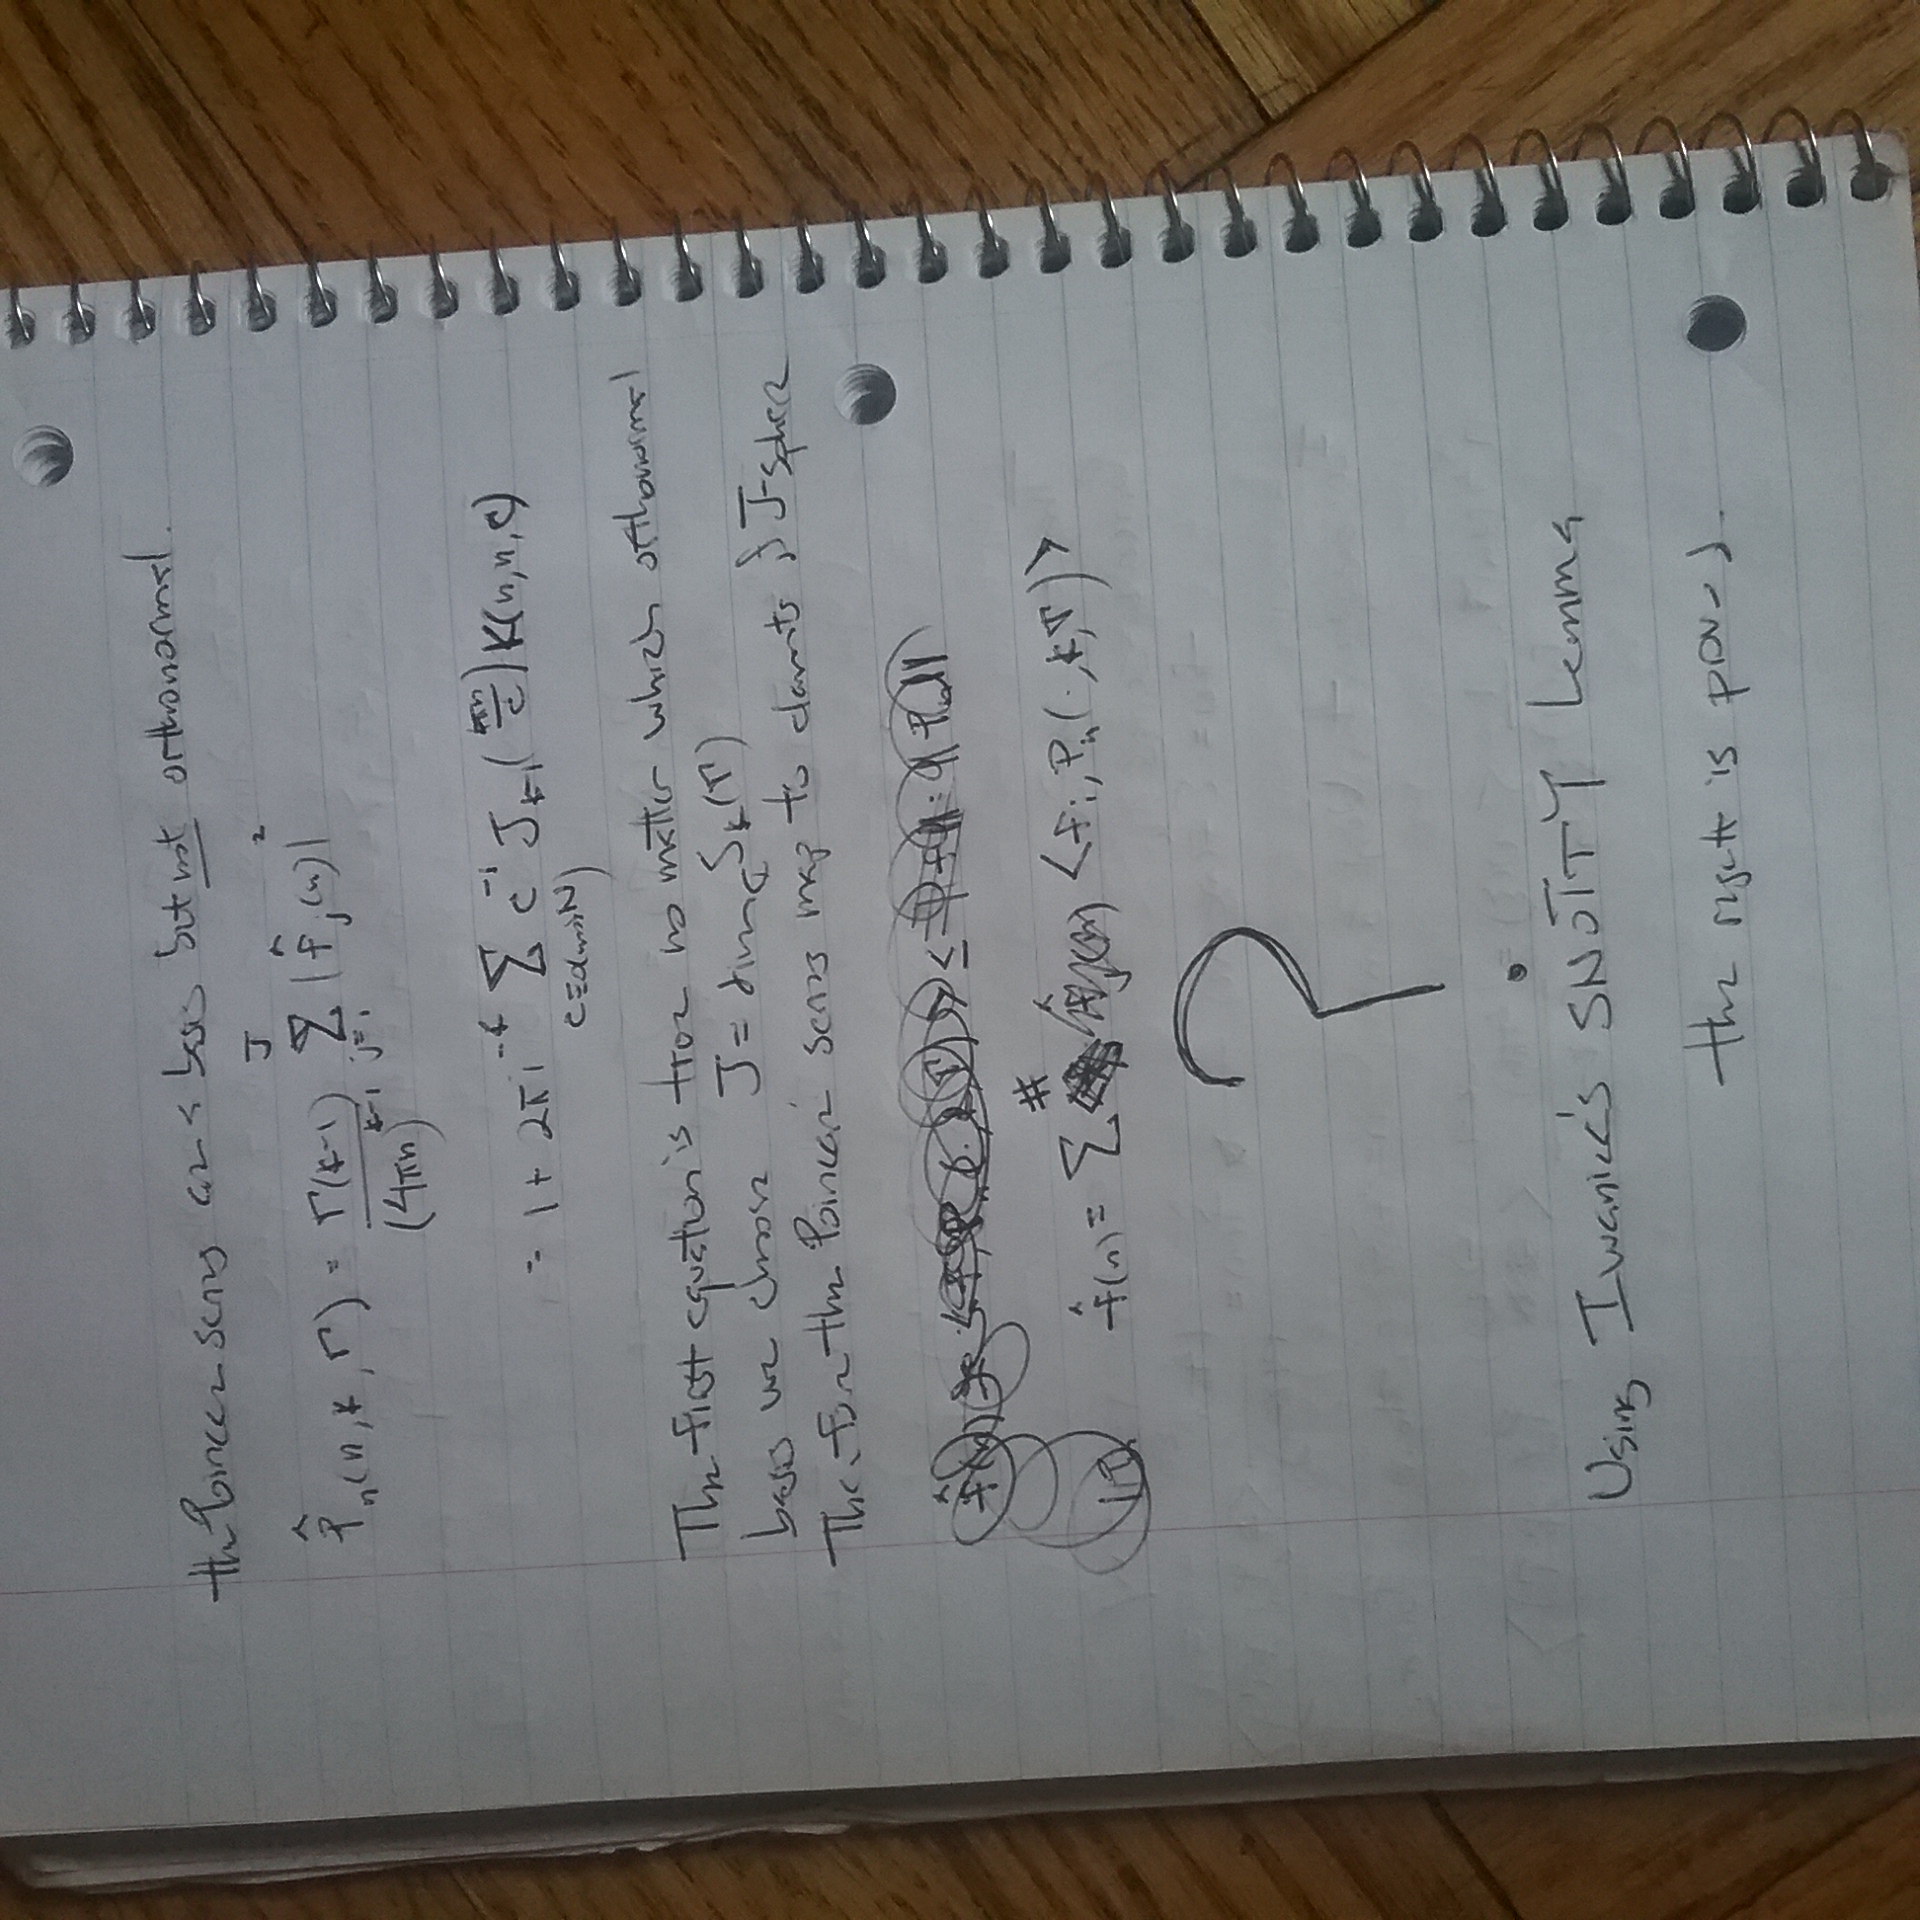 the Poincare series are a basis but not orthonormal.
P̂ₙ(n,k,Γ) = Γ(k-1)/(4πn)^{k-1} Σ_{j=1}^{J} |f̂ⱼ(n)|²
= 1 + 2πi^{-k} Σ_{c≡0(mod N)} c^{-1} J_{k-1}(4πn/c) K(n,n,c)
The first equation is true no matter which orthonormal
basis we choose J = dim_ℂ S_k(Γ)
Therefore the Poincaré series map to elements of J-sphere
≤ ‖f‖·‖Pₙ‖
f̂(n) = Σ # <fᵢ, Pₙ(·,k,Γ)>
?
Using Iwaniec's SNOTTY Lemma
the result is proved.